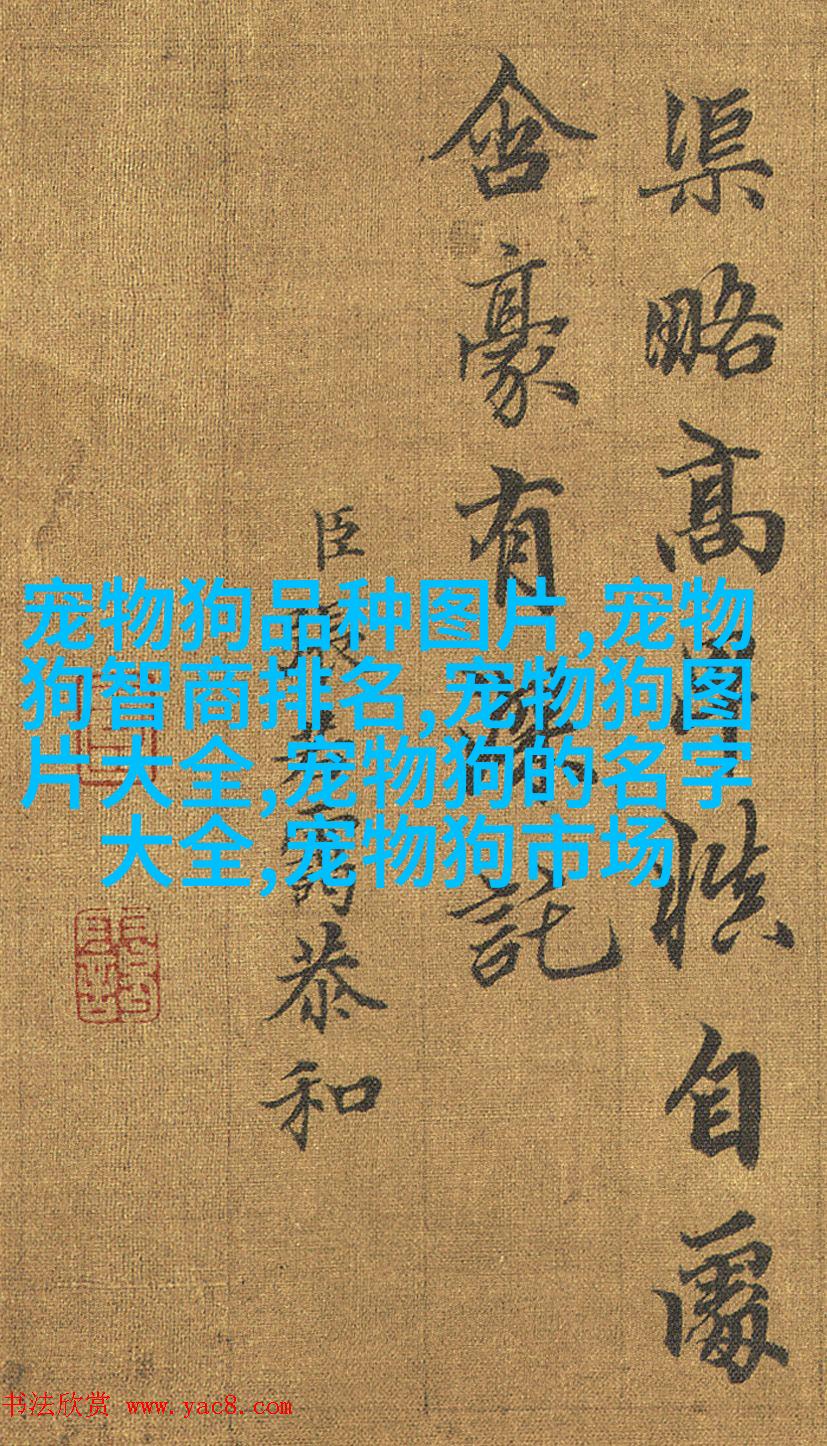 渠略高自
含豪有託
臣張若靄恭和
宠物狗品种图片,宠物
狗智商排名,宠物狗图
片大全,宠物狗的名字
大全,宠物狗市场
书法欣赏 www.yac8.com